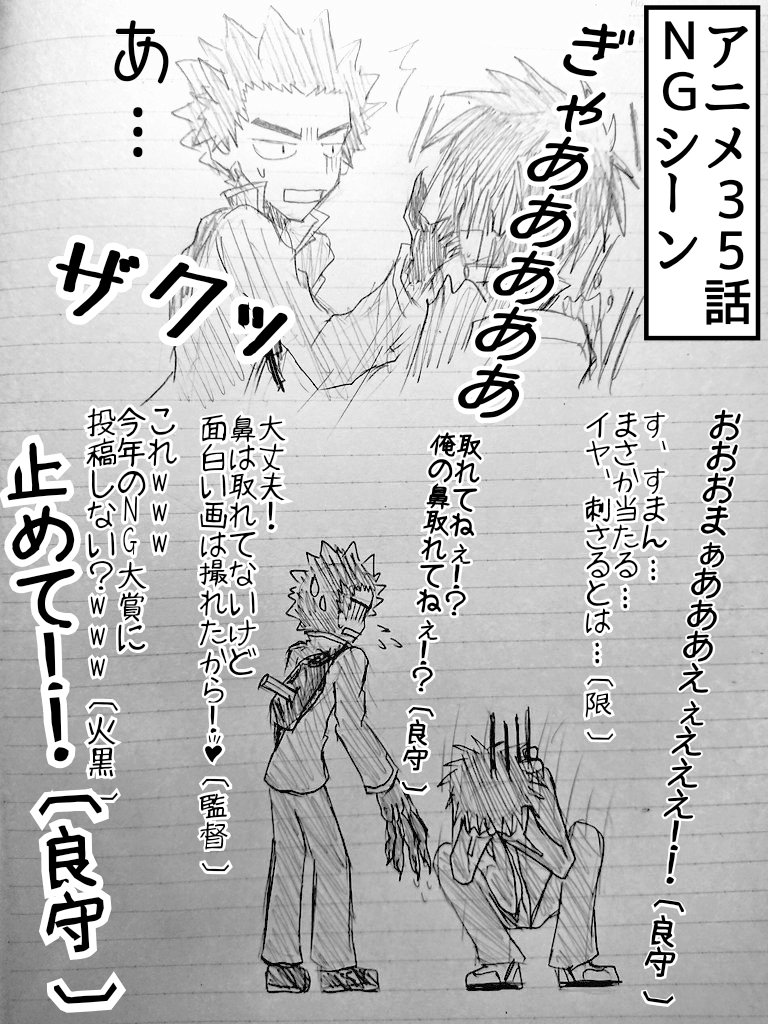 アニメ３５話
ＮＧシーン
ぎゃあああああ
あ…
ザクッ
おおおまぁあああえぇえええ！！〔良守〕
す、すまん…
まさか当たる…
イヤ、刺さるとは…〔限〕
取れてねぇ！？
俺の鼻取れてねぇ！？〔良守〕
大丈夫！
鼻は取れてないけど
面白い画は撮れたから！♥〔監督〕
これｗｗｗ
今年のＮＧ大賞に
投稿しない？ｗｗｗ〔火黒〕
止めて！！〔良守〕